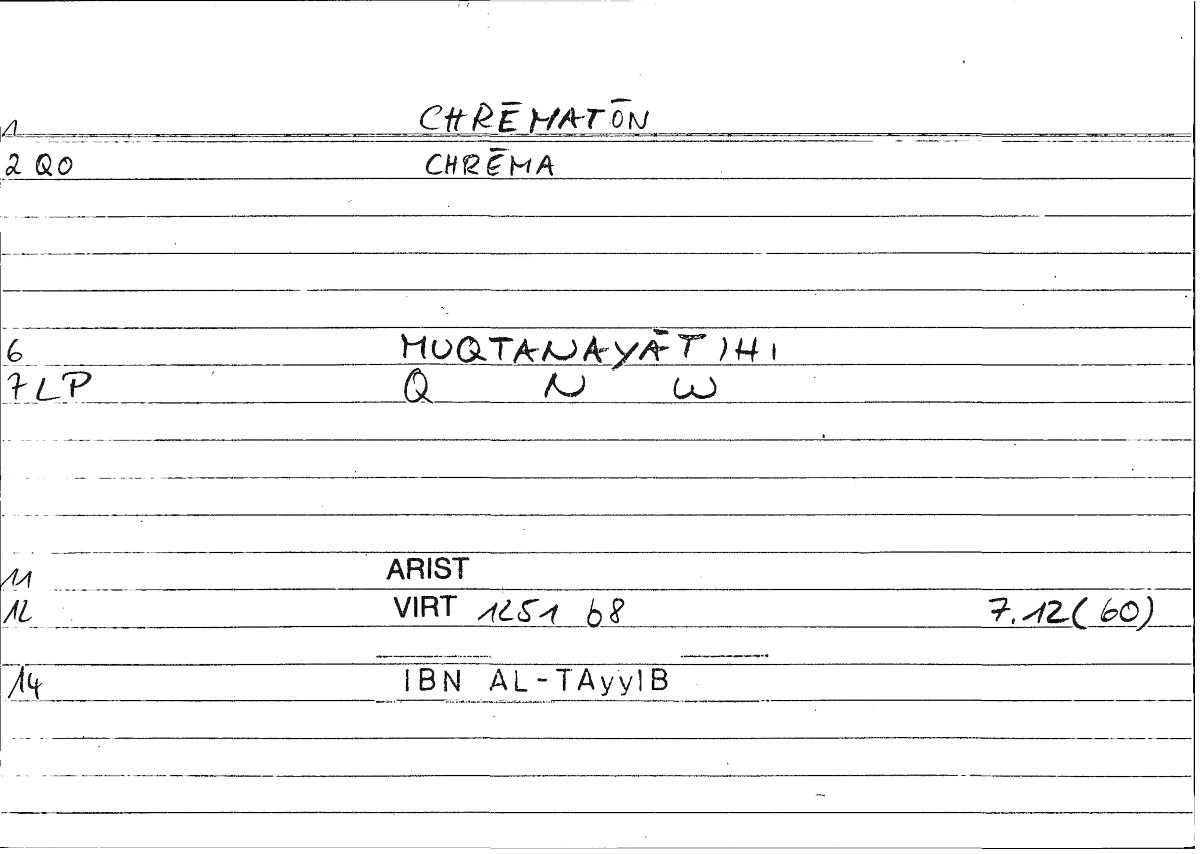 1 CHRĒMATŌN
2 QO CHRĒMA
6 MUQTANAYĀTIHI
7 LP Q N W
11 ARIST
12 VIRT 1251 b8 7.12(60)
14 IBN AL-TAyyIB